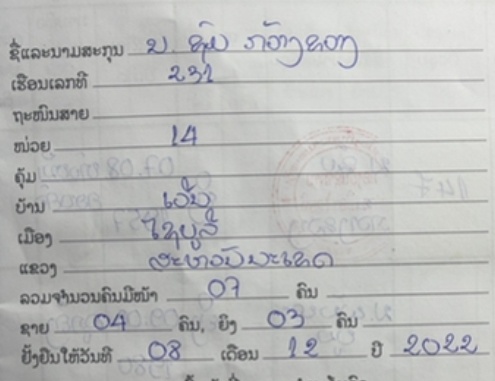 ຊື່ແລະນາມສະກຸນ ນ. ຊົມ
ເຮືອນເລກທີ 231
ຖະໜົນສາຍ
ໜ່ວຍ 14
ຄຸ້ມ
ບ້ານ
ເມືອງ ໄຊບູລີ
ແຂວງ ສະຫວັນນະເຂດ
ລວມຈຳນວນຄົນມີໜ້າ 07 ຄົນ
ຊາຍ 04 ຄົນ, ຍິງ 03 ຄົນ
ຢັ້ງຢືນໃຫ້ວັນທີ 08 ເດືອນ 12 ປີ 2022